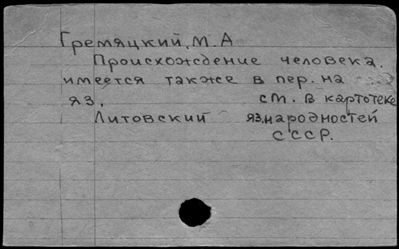 Гремяцкий, М.А
Происхождение человека.
имеется также в пер. на
яз. см. в картотеке
Литовский яз. народностей
СССР.